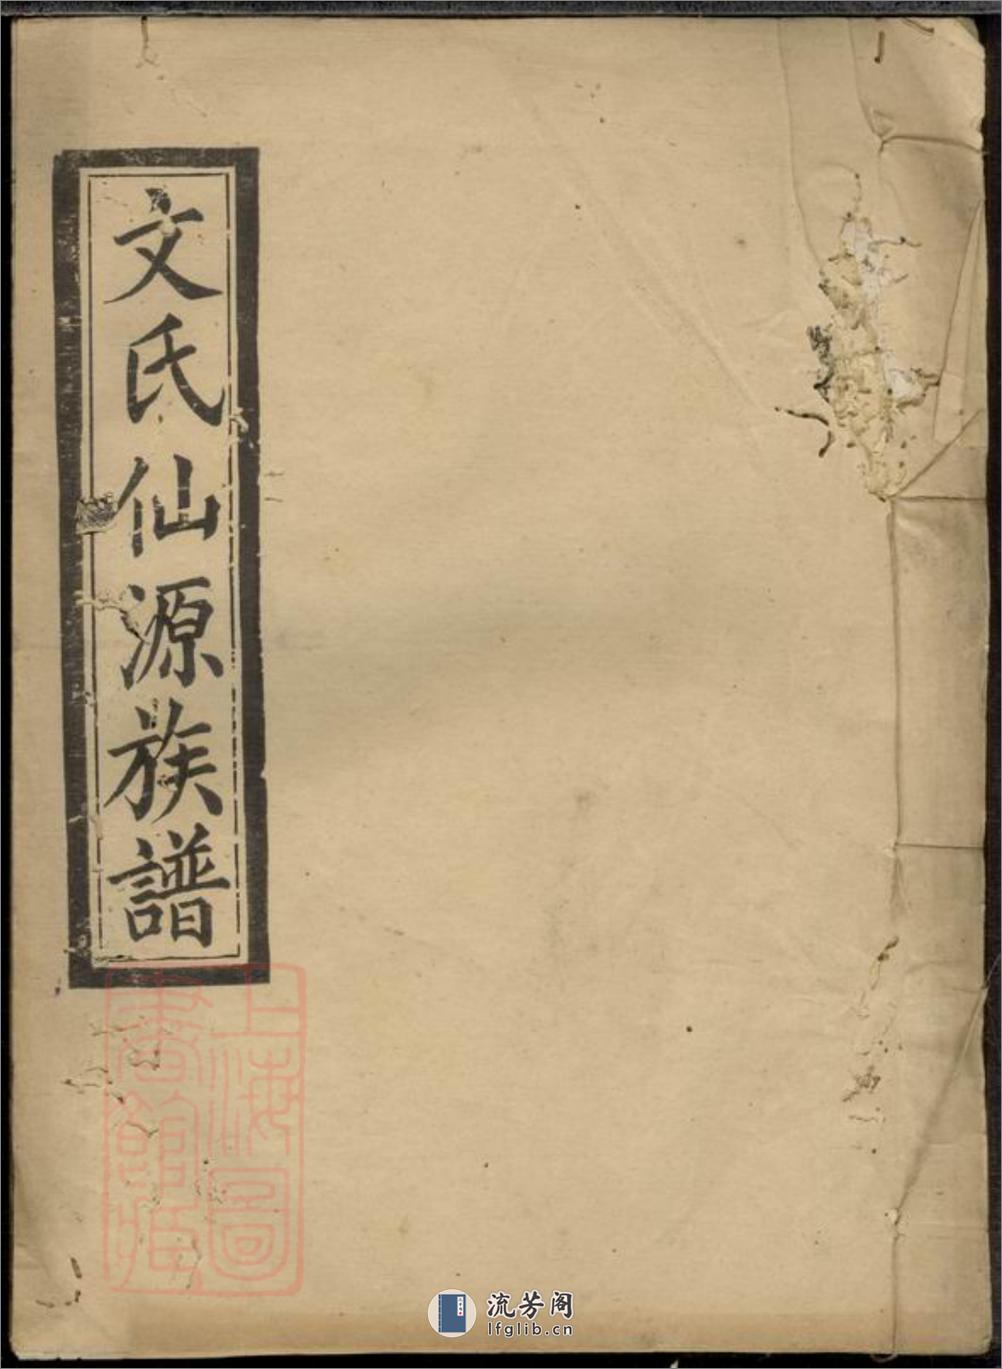 文氏仙源族譜
上海圖
書館藏
流芳阁
lfglib.cn